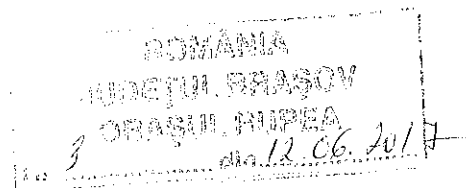 ROMÂNIA
JUDEŢUL BRAŞOV
ORAŞUL RUPEA
3 din 12.06.2017